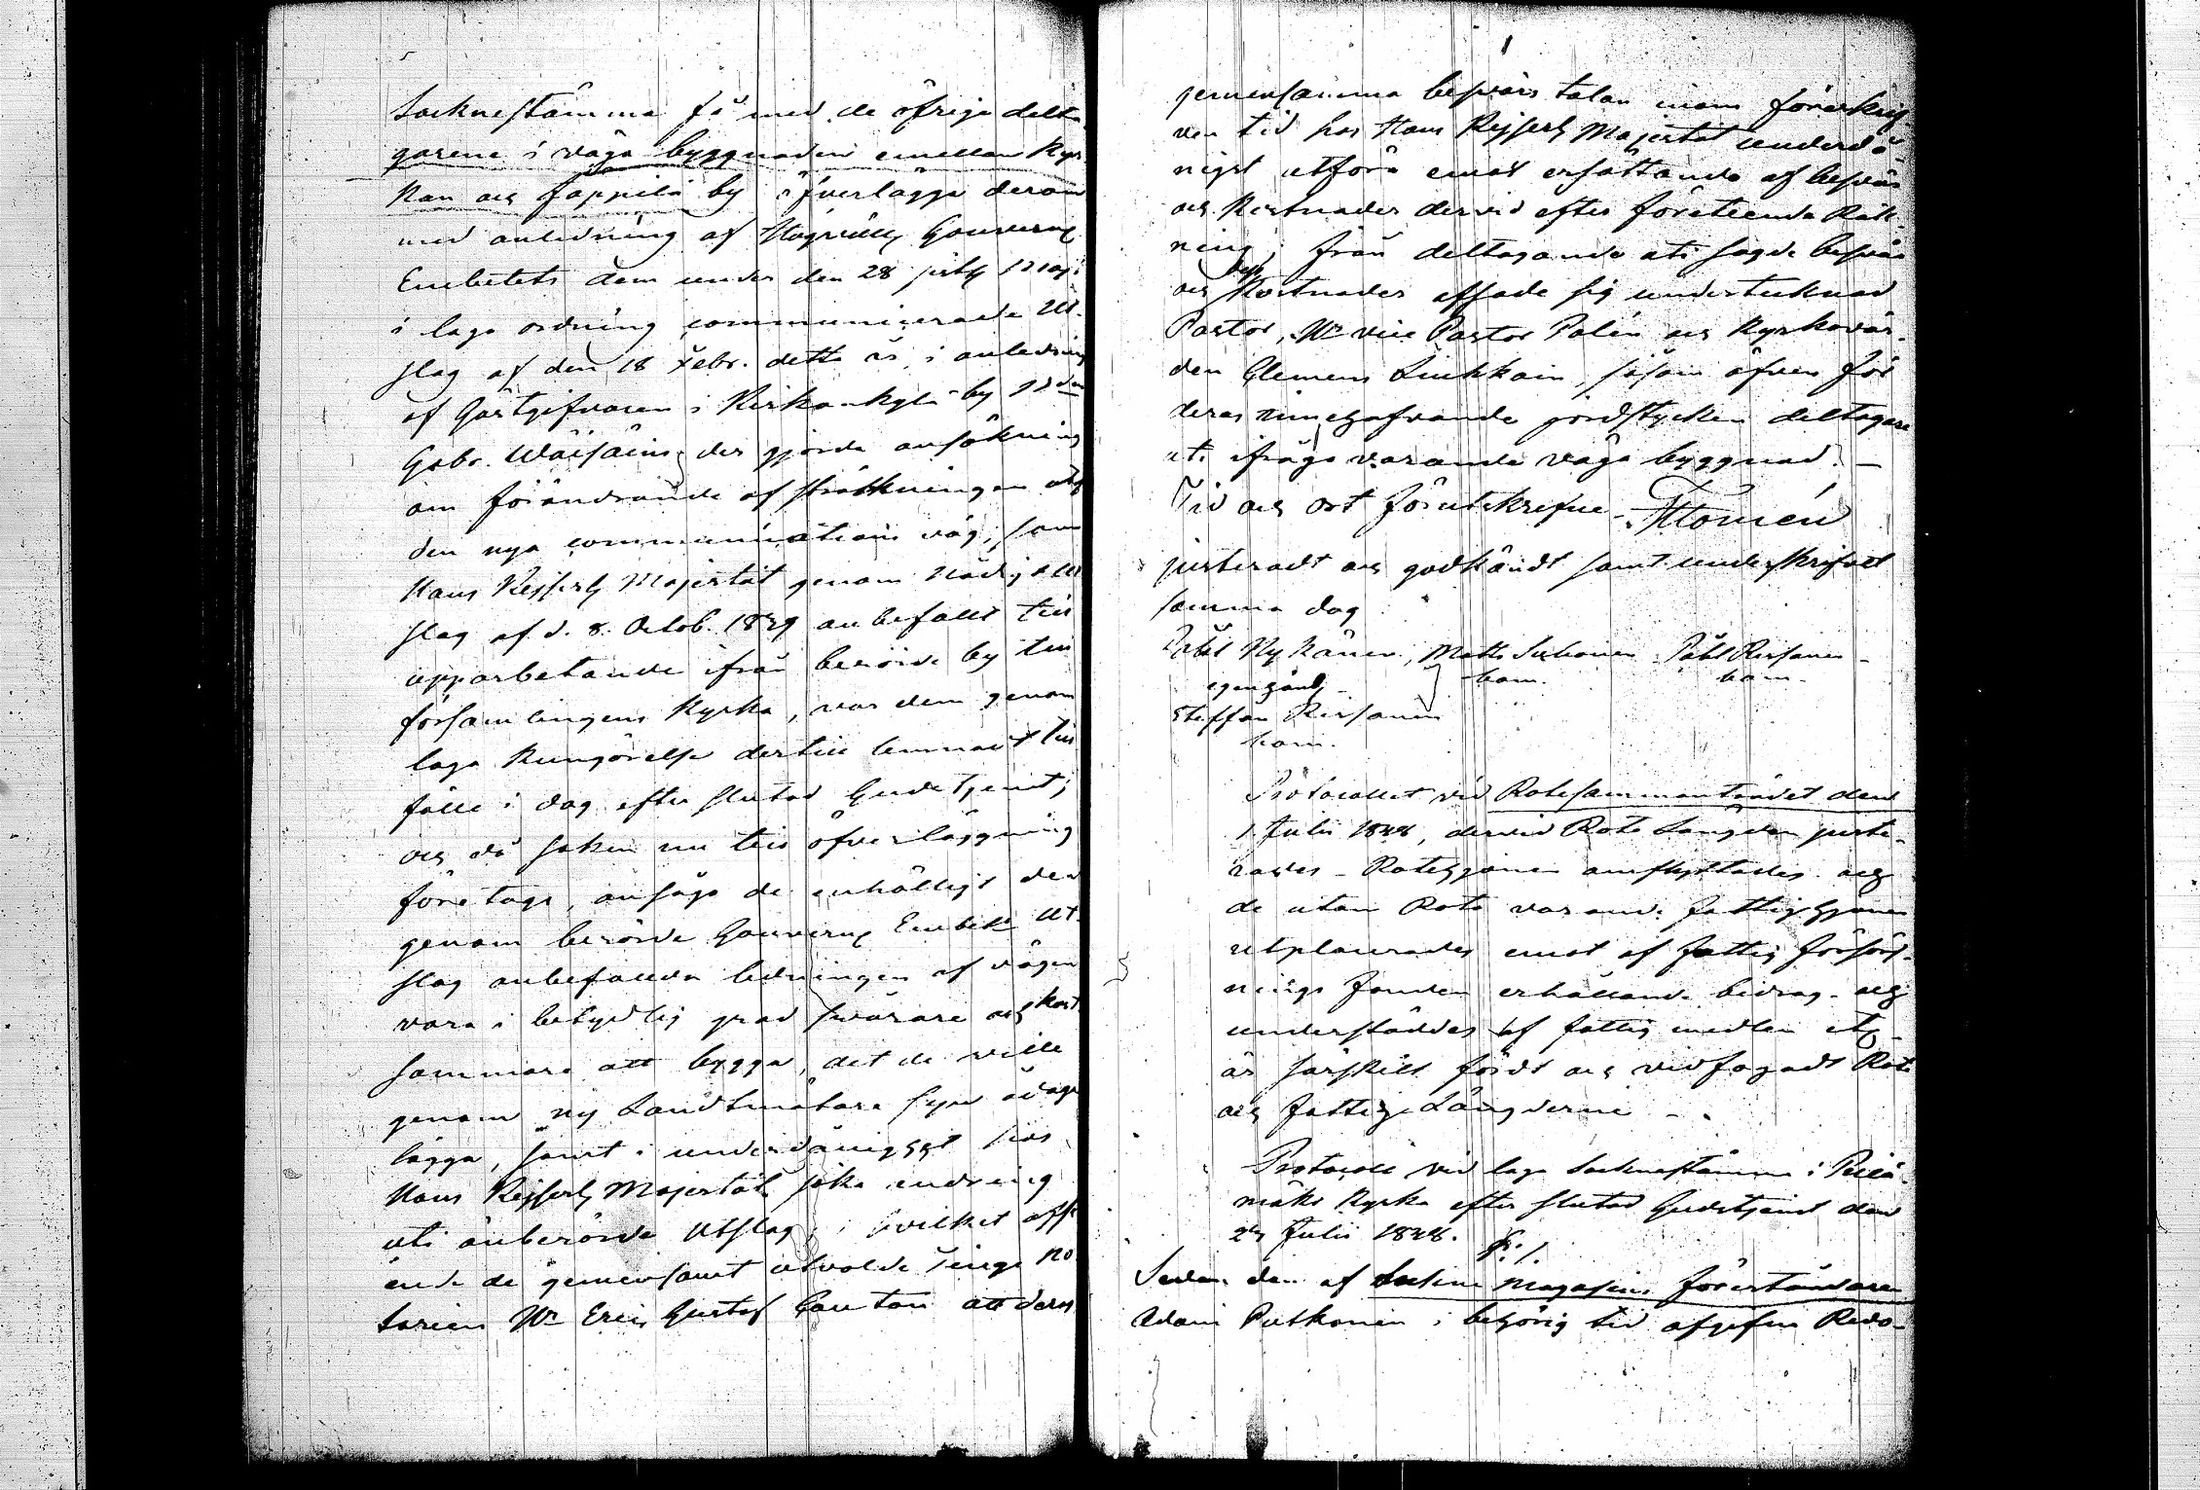 Socknestämma få med de öfrige delta-
garene i väga byggnaden emellan Kyr-
kan och Jappilä by öfverlägga derom
med anledning af Högvällofl Gouvern
Embetets dem under den 28
i laga ordning communicerade Ut-
slag af den 18 Febr. detta år, i anledning
af Gästgifvaren i Kirkonkylä by
Gabr. Wäisäins der gjorde ansökning
om förändrande af sträckningen
den nya communications väg, som
Hans Kejserl Majestät genom Nådigt Ut-
slag af d. 8. Octob. 1839 anbefallt till
upparbetande ifrån berörde by till
församlingens Kyrka, var dem genom
laga Kungörelse dertill lemnadt till
fälle i dag efter slutad Gudstjenst;
och då saken nu till öfverläggning
företogs, ansågo de enhälligt den
genom berörde Gouvern Embets Ut-
slag anbefallda ledningen af vägen
vara i betydlig grad svårare och kost-
sammare att bygga, det de ville
genom ny Landtmätare syn ådaga
lägga, samt i underdånighet hos
Hans Kejserl Majestät söka ändring
uti änberörde Utslag; i hvilket
ende de gemensamt utvalde Tings No-
tarien Hr Eric Gustaf Gauton att deras
gemensamma besvärs talan inom föreskrif-
ven tid hos Hans Kejserl Majestät underdå-
nigst utföra emot ersättande af besvär
och Kostnader dervid efter företeende Räk-
ning; från deltagande uti sagde besvär
och Kostnader undertecknad
Pastor, Hr vice Pastor Palén och Kyrkovär-
den Clemens Liukkoin, såsom äfven för
deras innehafvande jordstycken deltagare
uti ifråga varande väga byggnad. —
Tid och ort förutskrefne.
justeradt och godkändt samt underskrifvet
samma dag
Påhl Nykänen, Matts Suhonen Påhl Kirsonen
egenhändl bom. bom.
Steffan Kirsonen
bom.
Protocollet vid Rotesammanträdet den
1 Julii 1838, dervid Rote Längden juste-
rades - Rotehjonen omflyttades och
de utan Rote varande fattighjonen
utplacerades emot af fattig försörj-
nings fonden erhållande bidrag - och
understöddes af fattig medlen etc
är särskilt fördt och vidfogadt Rote
och fattige Längderne —
Protocoll vid laga Socknestämma i Pielä-
mäks Kyrka efter slutad Gudstjenst den
Julii 1838.
S:.
Sedan den af Sockne Magasins Föreståndaren
Adam Putkonen i behörig tid afgifne Redo-